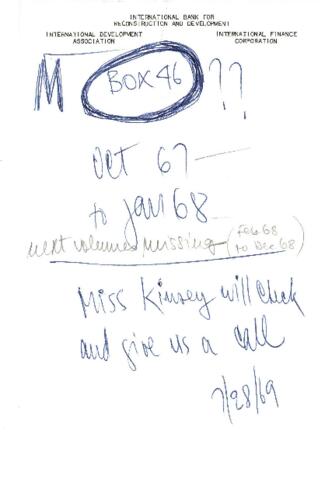 INTERNATIONAL BANK FOR
RECONSTRUCTION AND DEVELOPMENT
INTERNATIONAL DEVELOPMENT
ASSOCIATION
INTERNATIONAL FINANCE
CORPORATION
M BOX 46 ??
Oct 67 —
to Jan 68
next volumes missing (Feb 68
to Dec 68)
Miss Kinsey will check
and give us a call
7/28/69